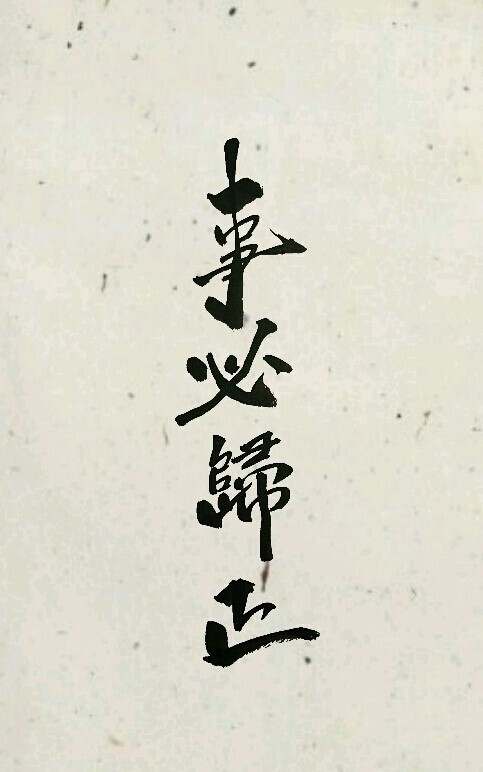 事必歸正